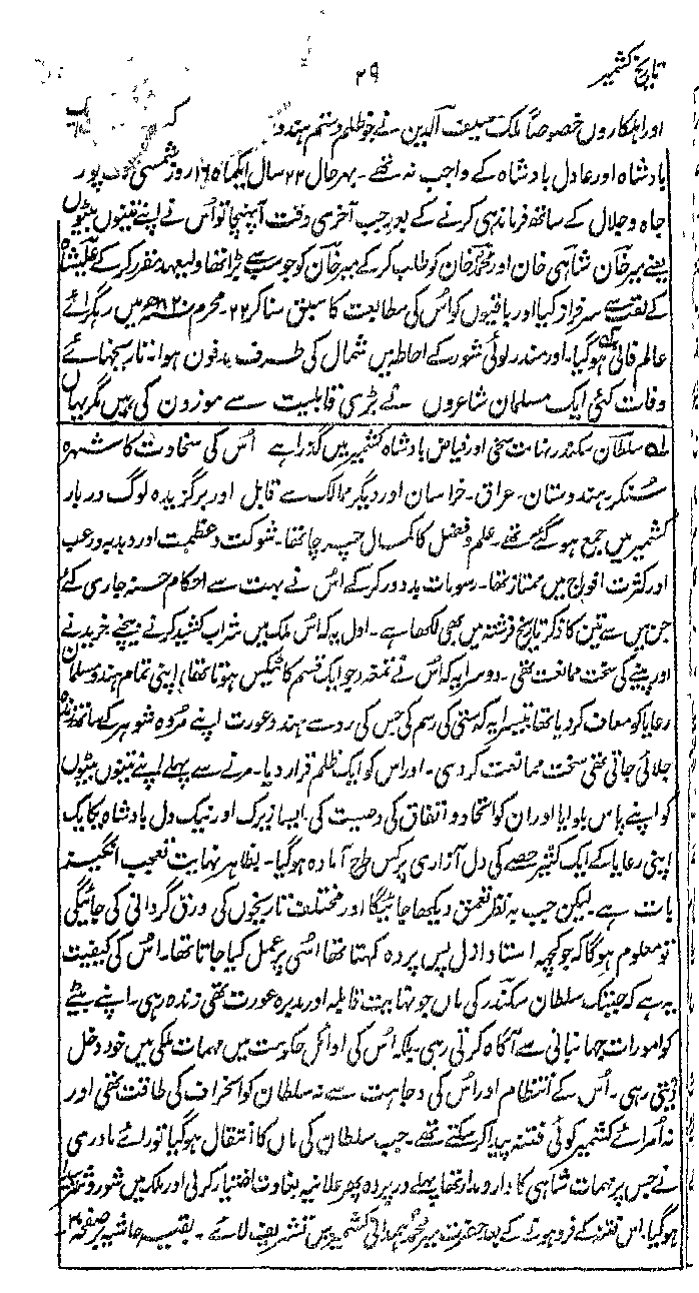 تاریخ کشمیر
۳۹
اور اہلکاروں خصوصاً ملک سیف الدین نے جو ظلم و ستم ہندو
بادشاہ اور عادل بادشاہ کے واجب نہ تھے۔ بہرحال ۲۲ سال ایکماہ ۱۶ روز شمسی پور
جاہ و جلال کے ساتھ فرماندہی کرنے کے بعد جب آخری وقت آپہنچا تو اُس نے اپنے تینوں بیٹوں
یعنے میر خان شاہی خان اور محمد خان کو طلب کر کے میر خان کو جو سب سے بڑا تھا ولیعہد مقرر کر کے علیشاہ
کے لقب سے سرفراز کیا اور باقیوں کو اُس کی مطابعت کا سبق سنا کر ۲۲۔ محرم ۸۲۰ھ میں رہگرائے
عالم فانی ہوگیا۔ اور مندر لوئی شور کے احاطہ میں شمال کی طرف مدفون ہوا۔ تاریخہائے
وفات کئی ایک مسلمان شاعروں نے بڑی قابلیت سے موزون کی ہیں مگر یہاں
لہ سلطان سکندر نہایت سخی اور فیاض بادشاہ کشمیر میں گذرا ہے اُس کی سخاوت کا شہرہ
سُنکر ہندوستان۔ عراق۔ خراسان اور دیگر ممالک سے قابل اور برگزیدہ لوگ دربار
کشمیر میں جمع ہو گئے تھے۔ علم و فضل کا کمال چرچا تھا۔ شوکت و عظمت اور دبدبہ و رعب
اور کثرت افواج میں ممتاز تھا۔ رسومات بد دور کر کے اُس نے بہت سے احکام حسنہ جاری کئے
جن میں سے تین کا ذکر تاریخ فرشتہ میں بھی لکھا ہے۔ اول یہ کہ اُس ملک میں شراب کشید کرنے بیچنے خریدنے
اور پینے کی سخت ممانعت تھی۔ دوسرا یہ کہ اُس نے تمغہ (جو ایک قسم کا ٹیکس ہوتا تھا) اپنی تمام ہندو مسلمان
رعایا کو معاف کر دیا تھا تیسرا یہ کہ ستی کی رسم کی جس کی رو سے ہندو عورت اپنے مُردہ شوہر کے ساتھ زندہ
جلائی جاتی تھی سخت ممانعت کر دی۔ اور اس کو ایک ظلم قرار دیا۔ مرنے سے پہلے اپنے تینوں بیٹوں
کو اپنے پاس بلوایا اور ان کو اتحاد و اتفاق کی وصیت کی۔ ایسا زیرک اور نیک دل بادشاہ یکایک
اپنی رعایا کے ایک کثیر حصے کی دل آزاری پر کس طرح آمادہ ہوگیا۔ بظاہر نہایت تعجب انگیز
بات ہے۔ لیکن جب بہ نظر تعمق دیکھا جائیگا اور مختلف تاریخوں کی ورق گردانی کی جائیگی
تو معلوم ہوگا کہ جو کچھ استاد ازل پس پردہ کہتا تھا اُسی پر عمل کیا جاتا تھا۔ اُس کی کیفیت
یہ ہے کہ جبتک سلطان سکندر کی ماں جو نہایت قابلہ اور مدبرہ عورت تھی زندہ رہی۔ اپنے بیٹے
کو امورات جہانبانی سے آگاہ کرتی رہی۔ بلکہ اُس کی اوائل حکومت میں مہمات ملکی میں خود دخل
دیتی رہی۔ اُس کے انتظام اور اُس کی وجاہت سے نہ سلطان کو انحراف کی طاقت تھی اور
نہ اُمرائے کشمیر کوئی فتنہ پیدا کر سکتے تھے۔ جب سلطان کی ماں کا انتقال ہوگیا تو رائے مادری
نے جس پر مہمات شاہی کا دارومدار تھا پہلے در پردہ پھر علانیہ بغاوت اختیار کر لی اور ملک میں شور و شر
ہوگیا۔ اس فتنہ کے فرو ہونے کے بعد حضرت میر محمد ہمدانی کشمیر میں تشریف لائے۔ بقیہ حاشیہ بر صفحہ